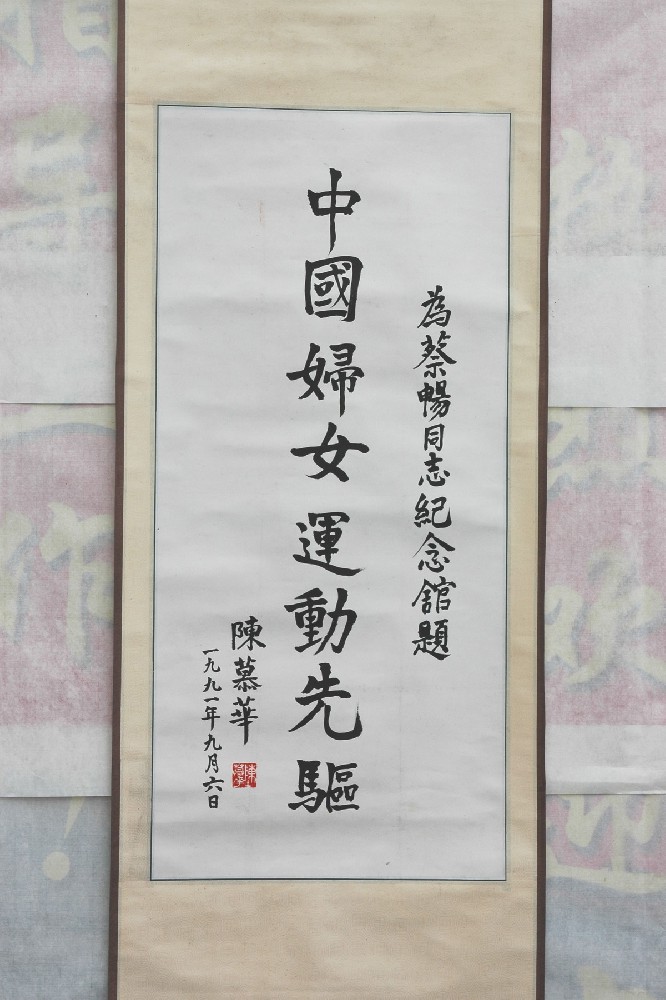 為蔡暢同志紀念館題
中國婦女運動先驅
陳慕華
一九九一年九月六日